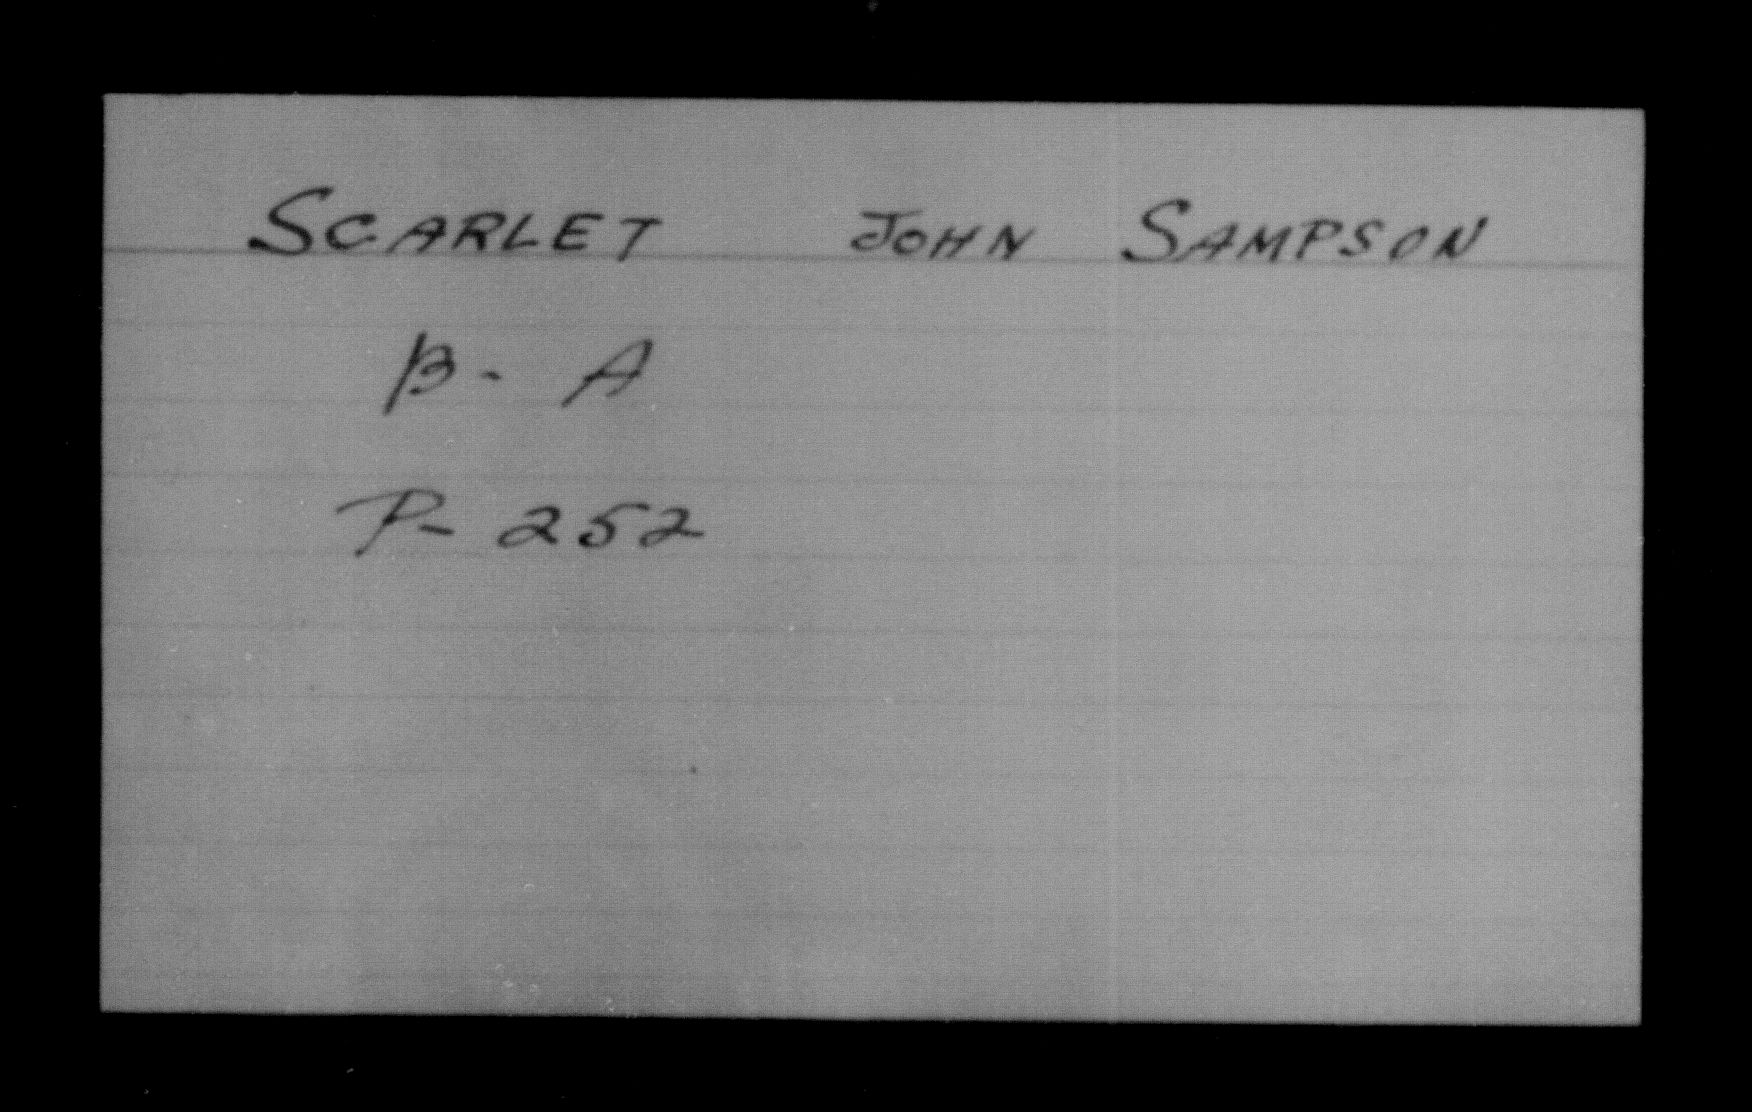 SCARLET JOHN SAMPSON
B - A
P - 252